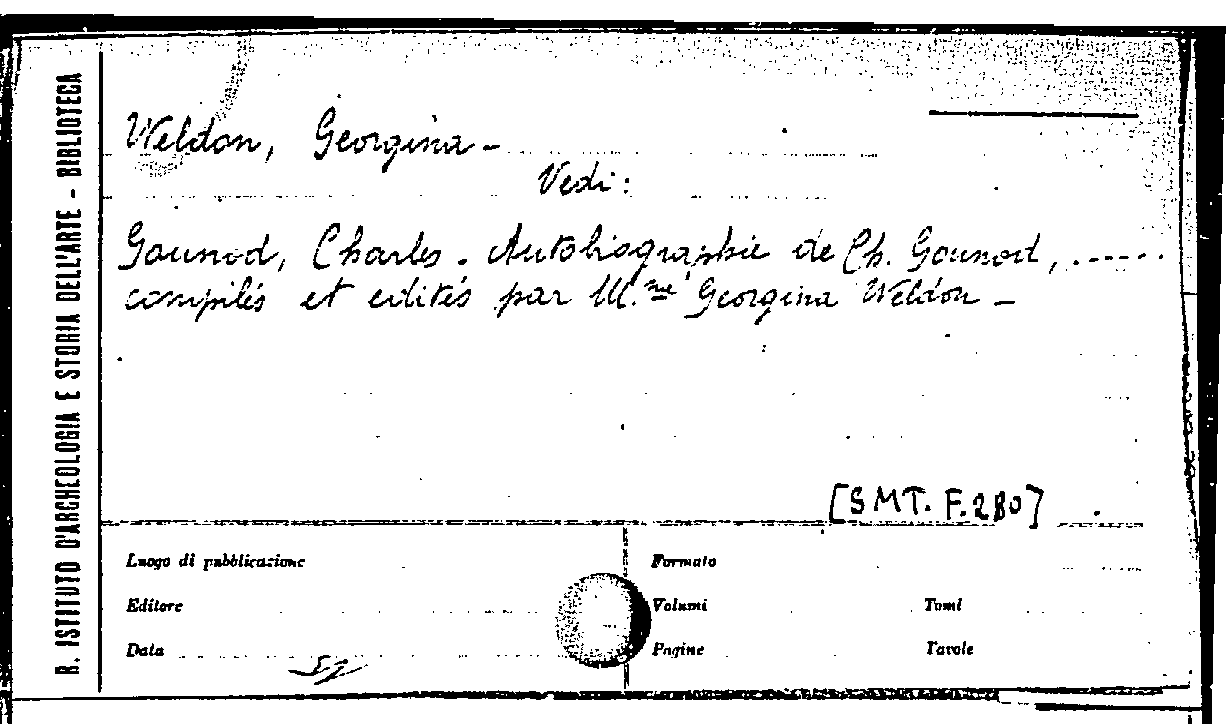 R. ISTITUTO D'ARCHEOLOGIA E STORIA DELL'ARTE - BIBLIOTECA
Weldon, Georgina -
Vedi:
Gounod, Charles. Autobiographie de Ch. Gounod, ......
compilés et edités par M.me Georgina Weldon -
[SMT. F. 280]
Luogo di pubblicazione
Formato
Editore
Volumi
Tomi
Data
Pagine
Tavole